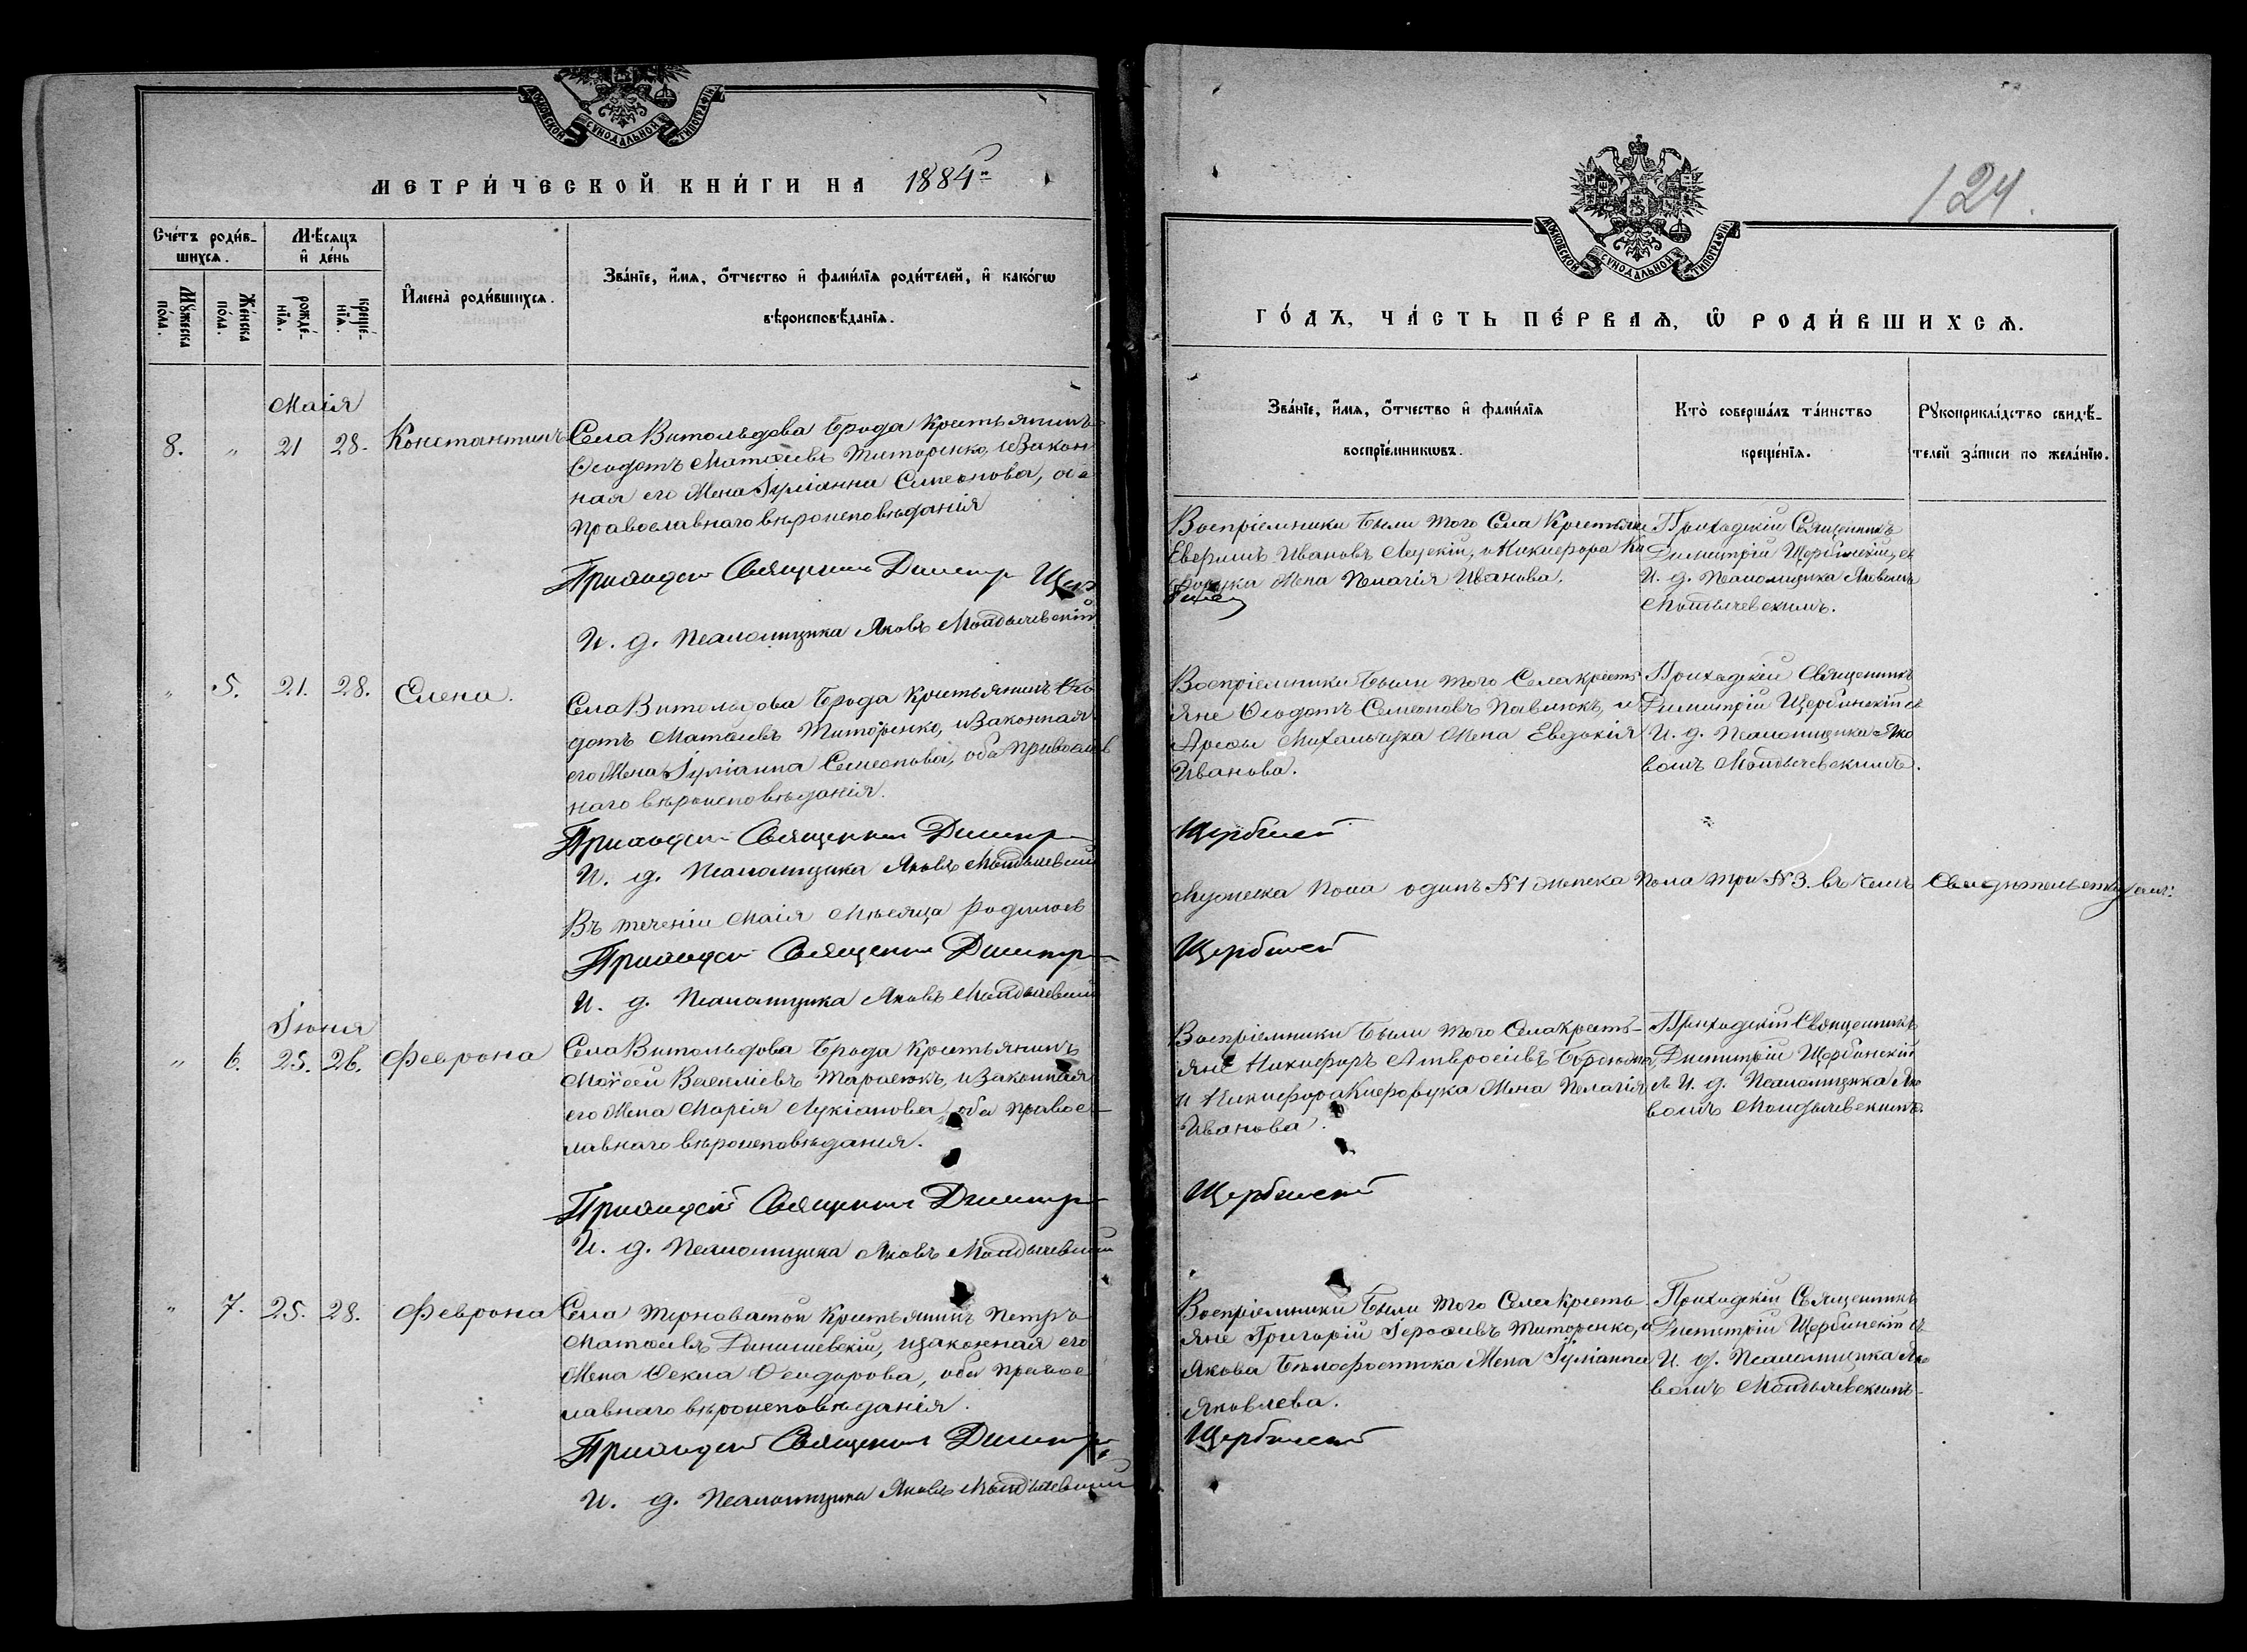 МОСКОВСКОЙ СѴНОДАЛЬНОЙ ТИПОГРАФІИ
МЕТРИ́ЧЕСКОЙ КНИ́ГИ НА 1884
Сче́тъ роди́в-
шихсѧ.
Мѣ́сѧцъ
и҆ де́нь
Мꙋ́жеска
по́ла.
Же́нска
по́ла.
рожде́-
нїѧ.
креще́-
нїѧ.
И҆мена̀ роди́вшихсѧ.
Зва́нїе, и҆́мѧ, ѻ҆́тчество и҆ фами́лїѧ роди́телей, и҆ како́гѡ
вѣроисповѣ́данїѧ.
Маія
8. " 21 28. Константинъ
Села Витольдова Брода Крестьянинъ
Ѳеодотъ Матѳеевъ Титоренко, и Закон
ная его Жена Іуліанна Симеонова, оба
православнаго вѣроисповѣданія
Приходскій Священникъ Димитр Щер
И. д. Псаломщика Яковъ
" 5. 21. 28. Елена.
Села Витольдова Брода Крестьянинъ Ѳео
дотъ Матѳеевъ Титоренко, и Законная
его Жена Іуліанна Симеонова, оба православ
наго вѣроисповѣданія.
Приходскій Священникъ Димитр
И. д. Псаломщика Яковъ
Въ теченіи Маія Мѣсяца родилось
Приходскій Священникъ Димитр
И. д. Псаломщика Яковъ
Іюня
" 6. 25. 26. Феврона
Села Витольдова Брода Крестьянинъ
Моѵсей Василіевъ Тарасюкъ, и Законная
его Жена Марія Лукіанова, оба правос-
лавнаго вѣроисповѣданія.
Приходскій Священникъ Димитр
И. д. Псаломщика Яковъ
" 7. 25. 28. Феврона
Села Терноватой Крестьянинъ Петръ
Матѳеевъ, изаконная его
Жена Ѳекла Ѳеодорова, оба правос
лавнаго вѣроисповѣданія.
Приходскій Священникъ Димитр
И. д. Псаломщика Яковъ
124.
МОСКОВСКОЙ СѴНОДАЛЬНОЙ ТИПОГРАФІИ
ГО́ДЪ, ЧА́СТЬ ПЕ́РВАѦ, Ѡ҆ РОДИ́ВШИХСѦ.
Зва́нїе, и҆́мѧ, ѻ҆́тчество и҆ фами́лїѧ
воспрїе́мникѡвъ.
Кто̀ соверша́лъ та́инство
креще́нїѧ.
Рꙋкоприкла́дство свидѣ́-
телей за́писи по жела́нїю.
Воспріемники Были того Села Крестьяне
Ивановъ, и Никифора Ки
форука Жена Пелагія Иванова.
Приходскій Священникъ
Димитрій Щербинскій, съ
И. д. Псаломщика Яковомъ
Воспріемники Были того Села крестъ
яне Ѳеодотъ Симеоновъ Павлюкъ, и
Михальчука Жена Евдокія
Иванова.
Приходскій Священникъ
Димитрій Щербинскій съ
И. д. Псаломщика Яко
вомъ
Щербинскій
Мужеска Пола одинъ №1 женска Пола три №3. въ чемъ Свидѣтельствуемъ:
Щербинскій
Воспріемники Были того Села Кресть-
яне Никифоръ Амвросіевъ
и Никифора Кифорука Жена Пелагія
Иванова.
Приходскій Священникъ
Димитрій Щербинскій
съ И. д. Псаломщика Яко
вомъ
Щербинскій
Воспріемники Были того Села Кресть
яне Григорій Іероѳеевъ Титоренко, и
Якова Жена Іуліанна
Яковлева.
Приходскій Священникъ
Димитрій Щербинскій съ
И. д. Псаломщика Яко
вомъ
Щербинскій